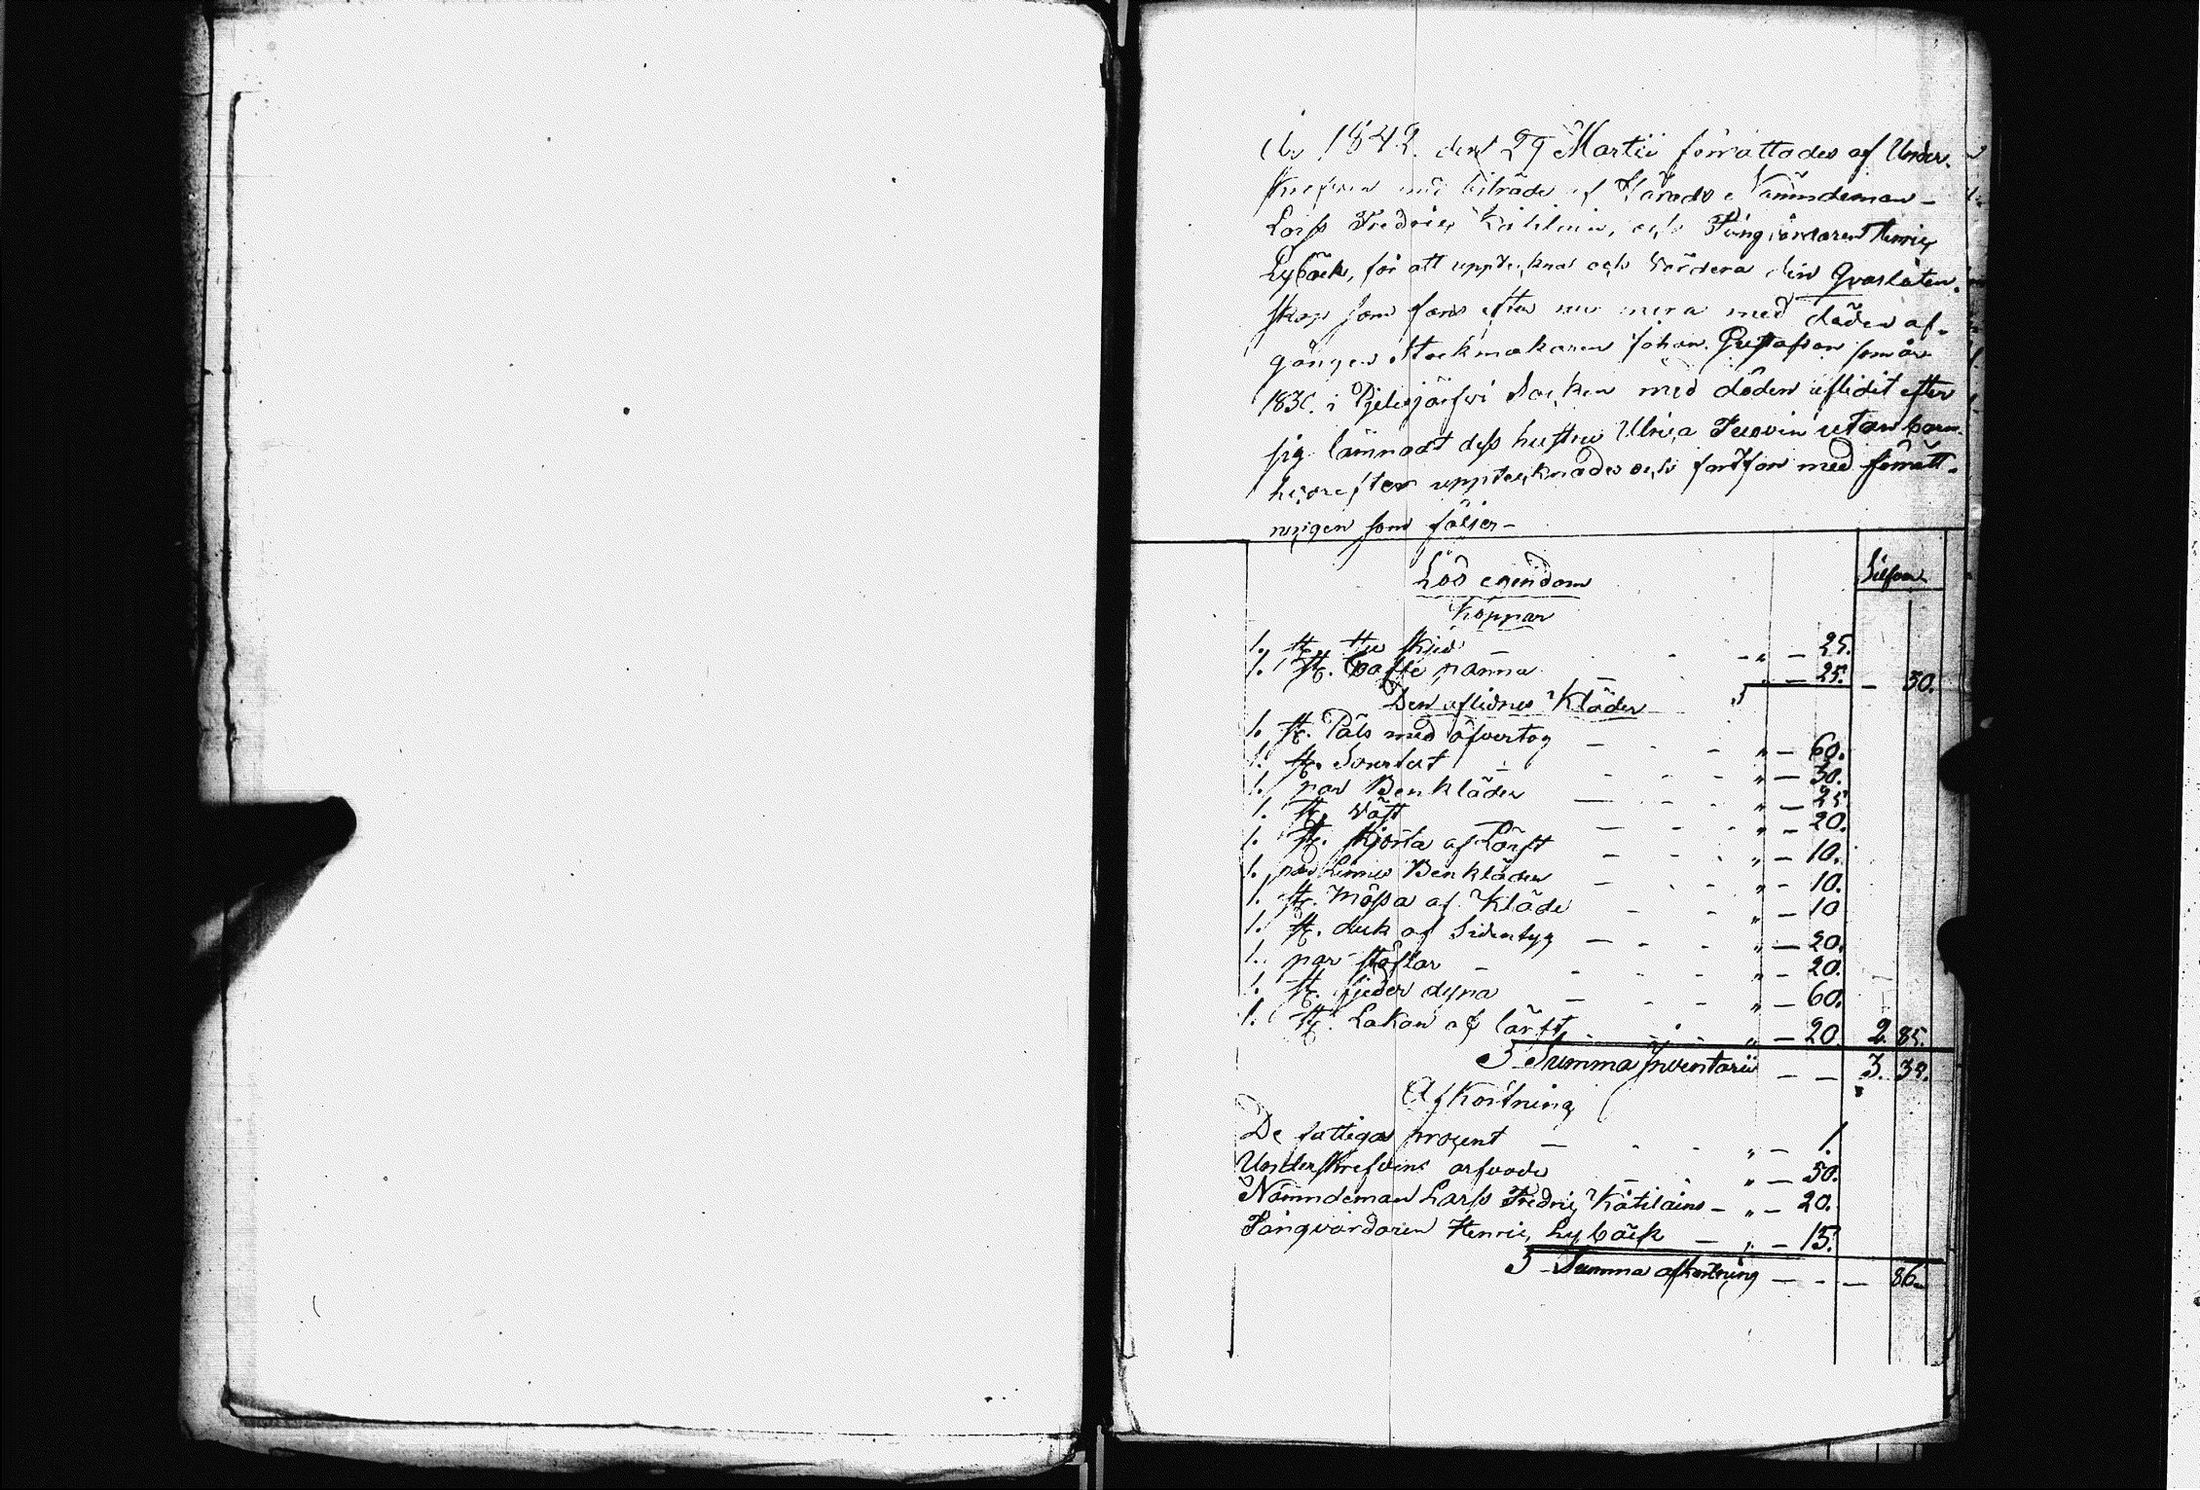 År 1842. den 29 Martii förrättades af Under-
skrefven med biträde af Härads Nämndeman
Larss Fredric Kätilain, och Fångvårdaren Henric
Lybäck, för att uppteckna och värdera den Qvarlåten-
skap som fans efter nu mera med döden af-
gångne Stockmakaren Johan Gustafson som år
183 i Pjelisjärfvi Socken med döden aflidit efter
sig lämnadt dess hustru Ulrica utan barn
hvarefter upptecknades och fortfor med förrätt-
ningen som följer -
Lös egendom
Silfver
Koppar
1. st. the 25.
1. st. Caffe panna " - 25. - 50.
Den aflidnes Kläder
1. st. Päls med öfvertog - - - " - 60.
1. st. Surtut - - - " - 30.
1. par Benkläder - - - " - 25
1. st. Väst - - - " - 20.
1. st. Skjorta af Lärft - - - " - 10.
1. par Linne Benkläder - - - " - 10.
1. st. Mössa af Kläde - - " - 10
1. st. duk af Sidentyg - - - " - 20.
1. par stöflar - - - - " - 20.
1. st. fjeder dyna - - - " - 60.
1. st. Lakan af lärft - - " - 20. 2. 85.
Summa Inventarii - - 3. 35.
Afkortning
De fattigas procent - - - " - 1.
Underskrefvens arfvode - - " - 50.
Nämndeman Larss Fredric Kätilains - " - 20.
Fångvårdaren Henric Lybäck - " - 15.
Summa afkortning - - - 86.